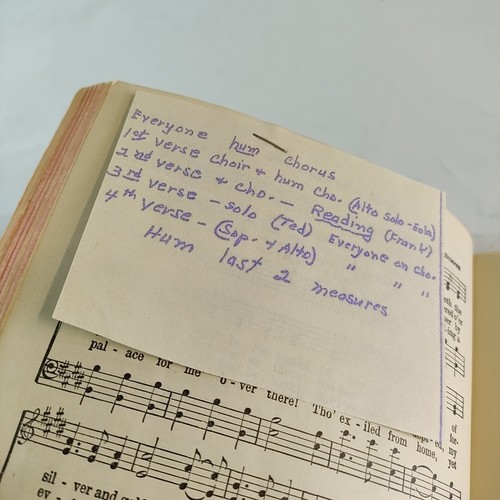 Everyone hum chorus
1st verse Choir & hum Cho. (Alto Solo-Eola)
2nd verse & Cho. - Reading (Frank)
3rd verse - Solo (Ted) Everyone on Cho.
4th verse - (Sop. & Alto) " " "
Hum last 2 measures
pal - ace for me o - ver there! Tho' ex - iled from home,
of
for-
my
yet
sil - ver and
ev -